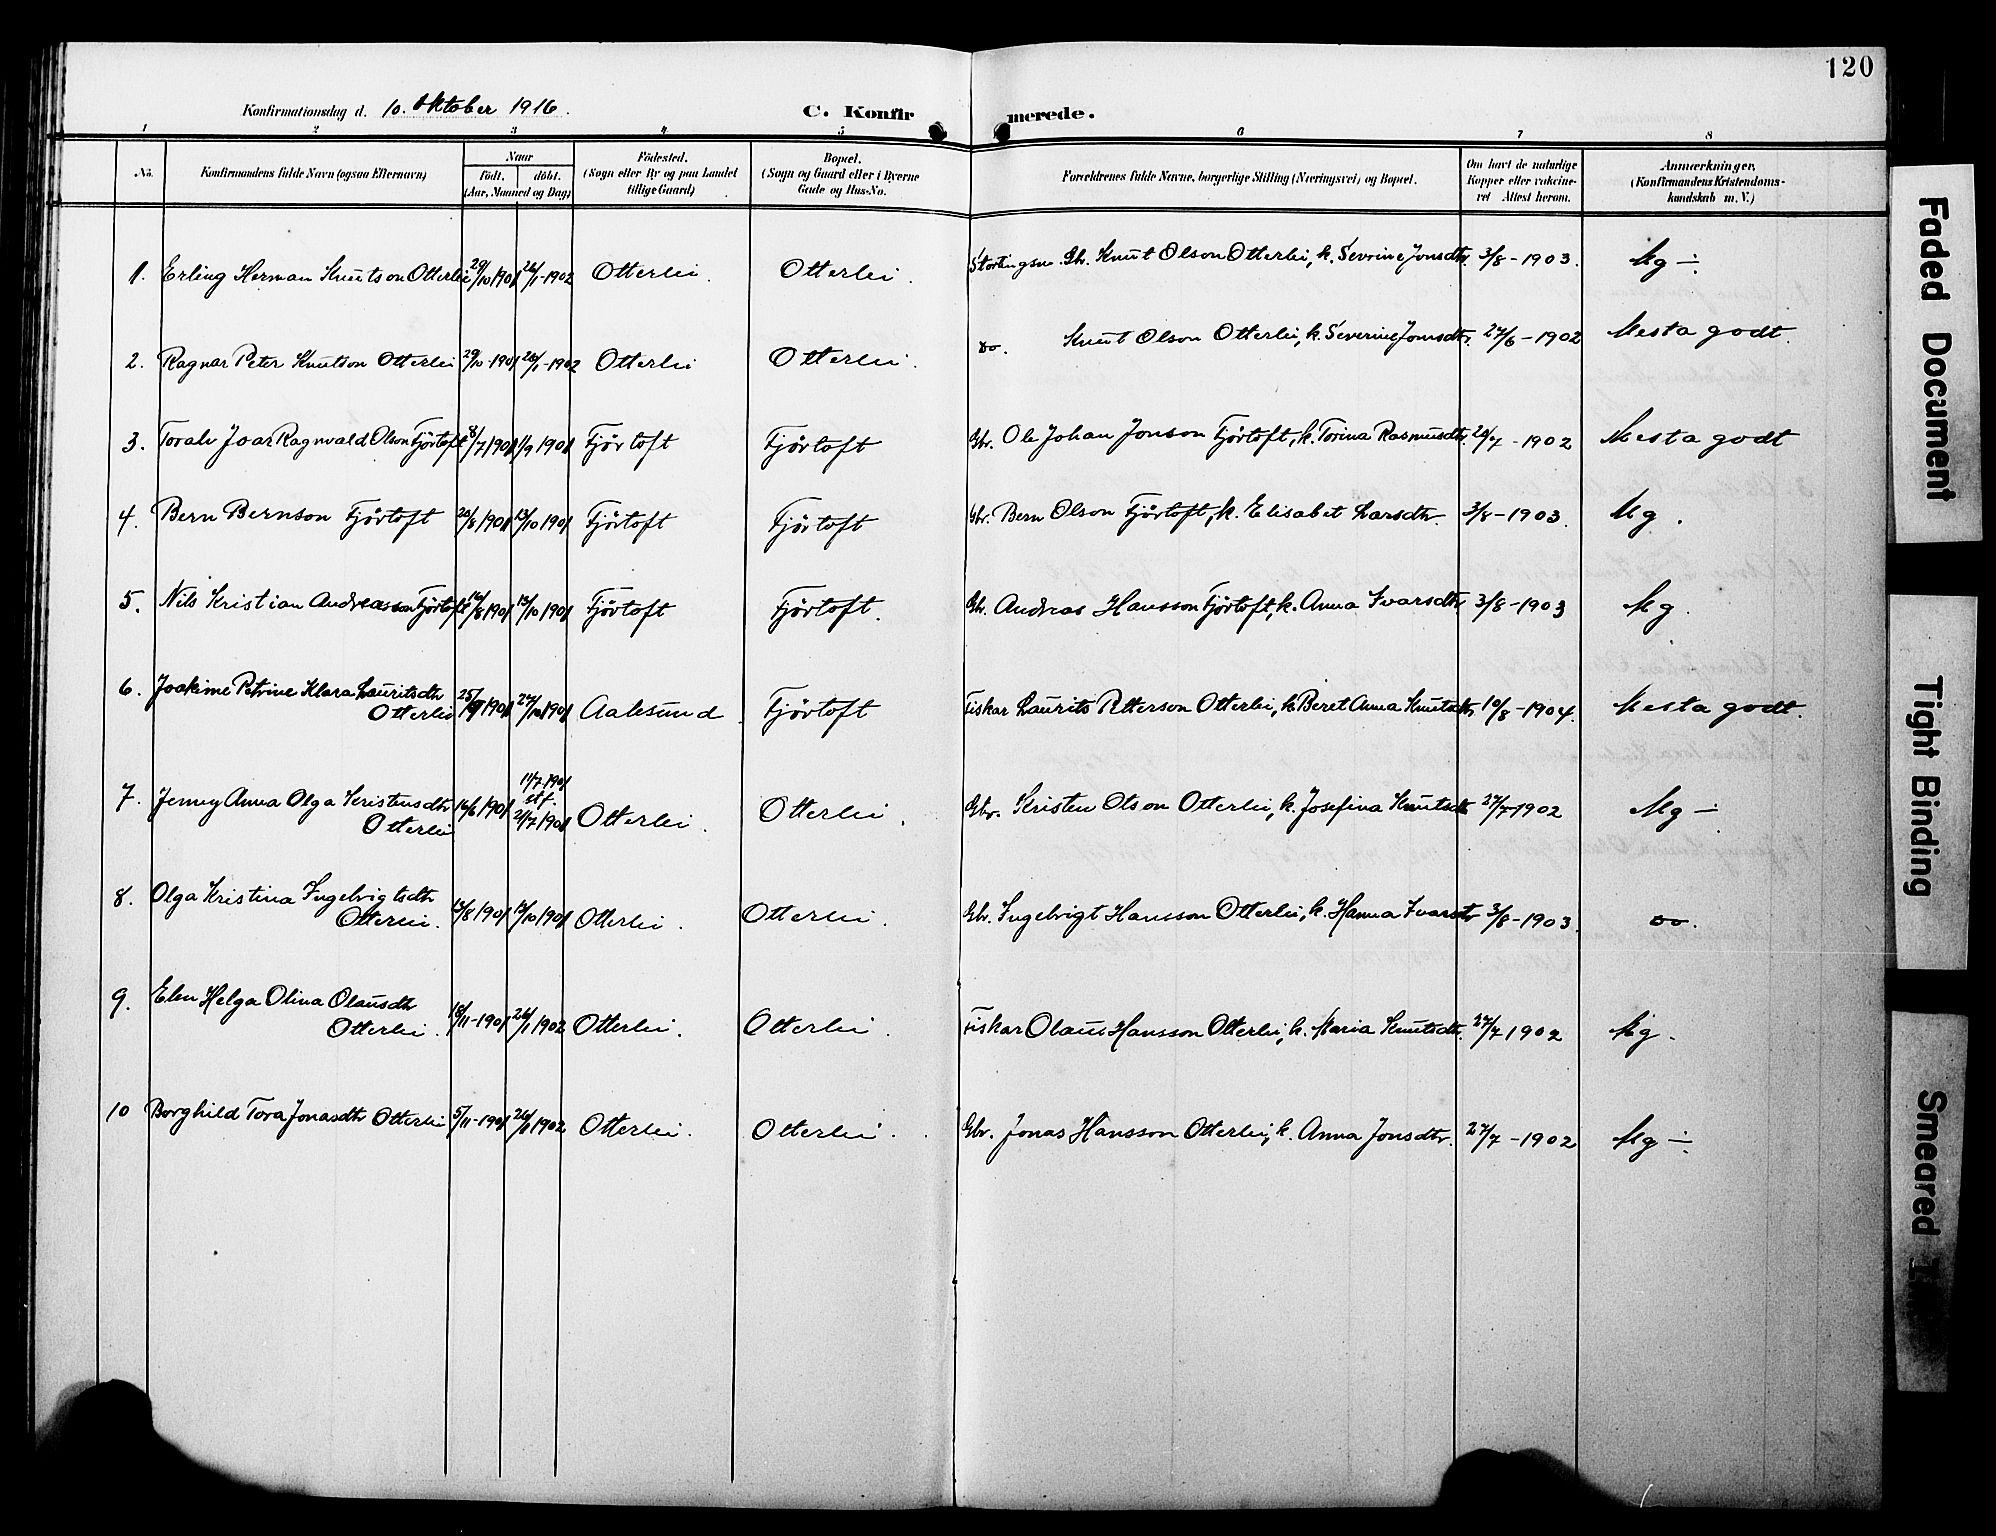 120
Konfirmationsdag d. 10. Oktober 1916.
C. Konfirmerede.
1 2 3 4 5 6 7 8
No. Konfirmandens fulde Navn (ogsaa Efternavn) Naar født, døbt. (Aar, Maaned og Dag) Fødested. (Sogn eller By og paa Landet tillige Gaard) Bopæl. (Sogn og Gaard eller i Byerne Gade og Hus-No. Forældrenes fulde Navne, borgerlige Stilling (Næringsvei) og Bopæl. Om havt de naturlige Kopper eller vakcineret Attest herom. Anmærkninger, (Konfirmandens Kristendomskundskab m. V.)
1. Erling Herman Knutson Otterlei 29/10 1901 26/1-1902 Otterlei. Otterlei. Stortingsm. Gbr. Knut Olson Otterlei, k. Severine Jonsdtr. 3/8-1903. Mg ÷
2. Ragnar Peter Knutson Otterlei 29/10-1901 26/1-1902 Otterlei Otterlei. Do. Knut Olson Otterlei, k. Severine Jonsdtr. 27/6-1902 Mesta godt.
3. Toralv Joar Ragnvald Olson Fjörtoft 8/7 1901 1/9 1901 Fjörtoft Fjörtoft Gbr. Ole Johan Jonson Fjörtoft, k. Torina Rasmusdtr. 26/7-1902 Mesta godt
4. Bern Bernson Fjörtoft 20/8 1901 13/10 1901 Fjörtoft Fjörtoft Gbr. Bern Olson Fjörtoft, k. Elisabet Larsdtr. 3/8-1903. Mg.
5. Nils Kristian Andreasson Fjörtoft 16/8 1901 13/10 1901 Fjörtoft Fjörtoft. Gbr. Andreas Hansson Fjörtoft, k. Anna Ivarsdtr 3/8-1903 Mg.
6. Joakime Petrine Klara Lauritsdtr
Otterlei 1901 27/10 1901 Aalesund Fjörtoft Fiskar Laurits Petterson Otterlei, k. Beret Anna Knutsdtr 10/8-1904. Mesta godt.
7. Jenny Anna Olga Kristensdtr
Otterlei 16/6 1901 11/7 1901 stf. 21/7 1901 Otterlei. Otterlei. Gbr. Kristen Olson Otterlei, k. Josefina Knutsdtr 27/7 1902 Mg ÷
8. Olga Kristina Ingebrigtsdtr
Otterlei. 1901 13/10 1901 Otterlei. Otterlei. Gbr. Ingebrigt Hansson Otterlei, k. Hanna Ivarsdtr 3/8-1903. Do.
9. Elen Helga Olina Olausdtr
Otterlei. 18/11-1901 26/1 1902 Otterlei. Otterlei. Fiskar Olaus Hansson Otterlei, k. Maria Knutsdtr. 27/7 1902 Mg.
10 Borghild Tora Jonasdtr Otterlei 5/11-1901 26/1 1902 Otterlei. Otterlei. Gbr. Jonas Hansson Otterlei, k. Anna Jonsdtr. 27/7-1902 Mg ÷
Faded Document
Tight Binding
Smeared